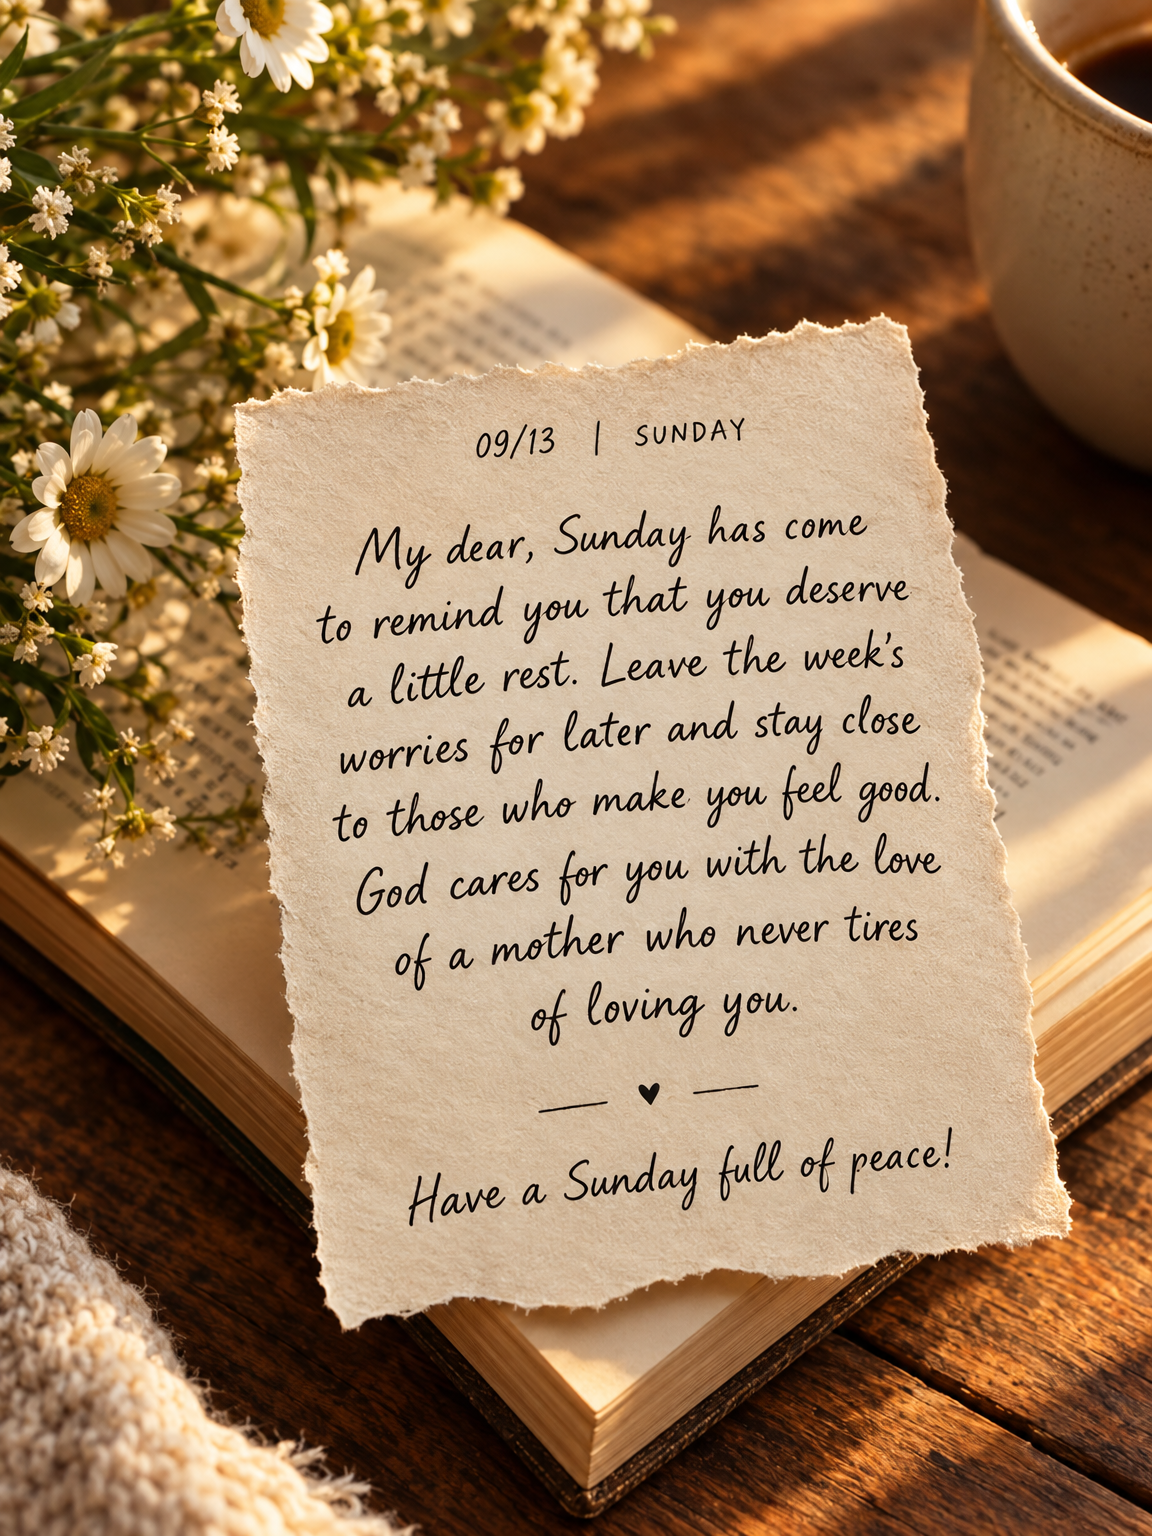 09/13 | SUNDAY
My dear, Sunday has come
to remind you that you deserve
a little rest. Leave the week's
worries for later and stay close
to those who make you feel good.
God cares for you with the love
of a mother who never tires
of loving you.
Have a Sunday full of peace!